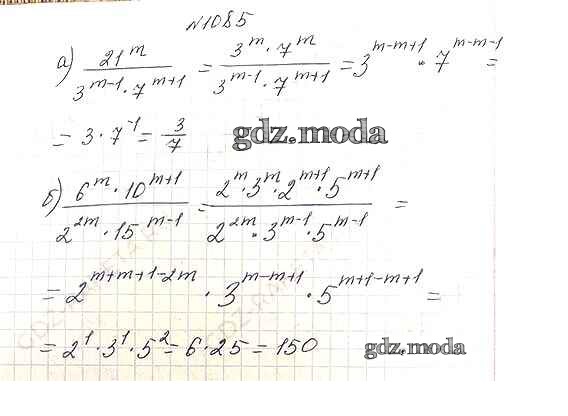 №1085
а) 21^m / (3^(m-1) · 7^(m+1)) = (3^m · 7^m) / (3^(m-1) · 7^(m+1)) = 3^(m-m+1) · 7^(m-m-1) =
= 3 · 7^(-1) = 3/7
gdz.moda
б) (6^m · 10^(m+1)) / (2^(2m) · 15^(m-1)) = (2^m · 3^m · 2^(m+1) · 5^(m+1)) / (2^(2m) · 3^(m-1) · 5^(m-1)) =
= 2^(m+m+1-2m) · 3^(m-m+1) · 5^(m+1-m+1) =
= 2^1 · 3^1 · 5^2 = 6 · 25 = 150
gdz.moda